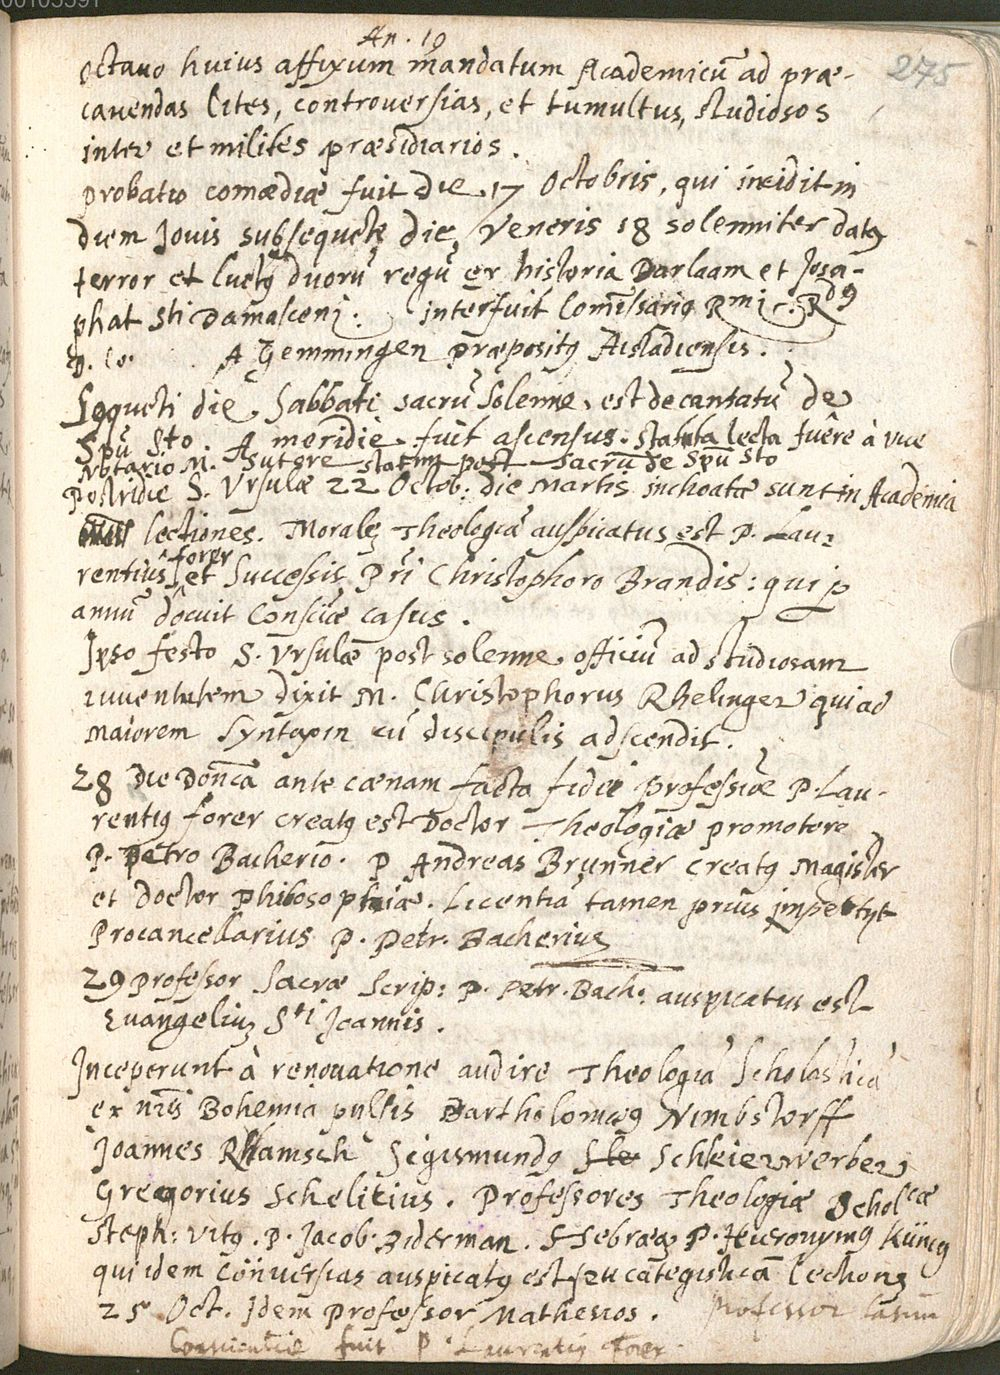 00105391
An. 19
275
octauo huius affixum mandatum Academicū ad præ-
cauendas lites, controuersias, et tumultus, studiosos
inter et milites præsidiarios.
Probatio comædiæ fuit die 17 Octobris, qui incidit in
diem Jouis subsequēte die Veneris 18 solenniter datꝰ
terror et luctꝰ duorū regū ex historia Barlaam et Josa-
phat Sti Damasceni. interfuit Comissariꝰ Rmi. Rdꝰ
D. A Gemmingen præpositꝰ Aistadiensis.
Sequēti die Sabbati sacrū solenne est decantatū de
Spū Sto. A meridie fuit ascensus. statuta lecta fuêre à
Notario M. Sutore statim post sacrū de Spū Sto
Postridie S. Vrsulæ 22 Octob: die Martis inchoatæ sunt in Academia
lectiones. Moralē Theologiā auspicatus est P. Lau-
rentius forer et Successit Pri Christophoro Brandis: qui
annū docuit Consciæ casus.
Ipso festo S. Vrsulæ post solenne officiū ad studiosam
iuuentutem dixit M. Christophorus Rhelinger qui ad
maiorem Syntaxin cū discipulis adscendit.
28 Die Donca ante cænam facta fidei professiōe P. Lau-
rentiꝰ forer creatꝰ est Doctor Theologiæ promotore
P. Petro Bacherio. P Andreas Brunner creatꝰ Magister
et Doctor Philosophiæ. Licentiā tamen prius impertyt
Procancellarius P. Petr. Bacherius
29 Professor Sacræ Scrip: P. Petr. Bach: auspicatus est
Euangeliū Sti Joannis.
Inceperunt à renouatione audire Theologiā Scholasticā
ex nris Bohemia pulsis Bartholomæꝰ Nimbstorff
Joannes Rhamsch Sigismundꝰ Schleierwerber
Gregorius Schelizius. Professores Theologiæ Scholcæ
Steph: Vitꝰ. P. Jacob. Biderman. Hebrææ P. Hieronymꝰ Küng
qui idem Cōuersias auspicatꝰ est lectiones
25 Oct. Idem Professor Matheseos. Professor casuum
Conscientiæ fuit P. Laurentiꝰ Forer.